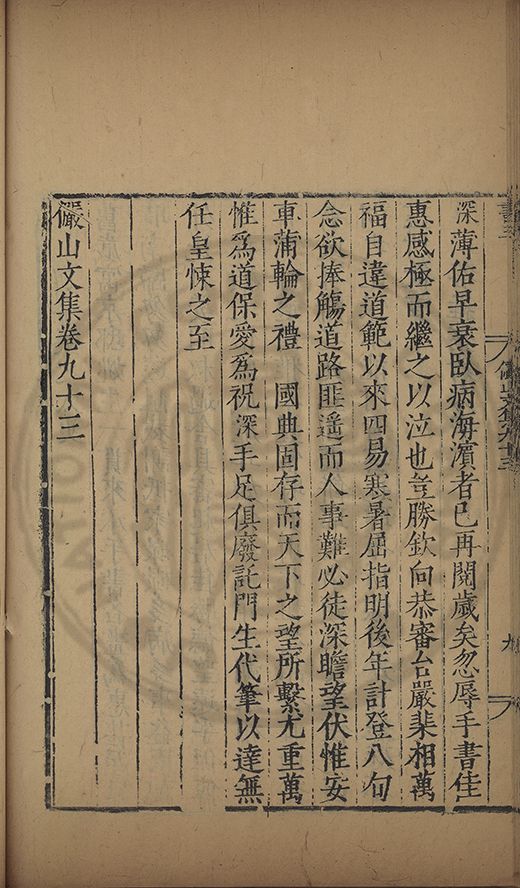 深薄佑早衰臥病海濵者已再閱歲矣忽辱手書佳
惠感極而繼之以泣也豈勝欽向恭審台嚴棐相萬
福自違道範以來四易寒暑屈指明後年計登八旬
念欲捧觴道路匪遥而人事難必徒深瞻望伏惟安
車蒲輪之禮 國典固存而天下之望所繫尤重萬
惟爲道保愛爲祝深手足俱廢託門生代筆以達無
任皇悚之至
儼山文集卷九十三
九